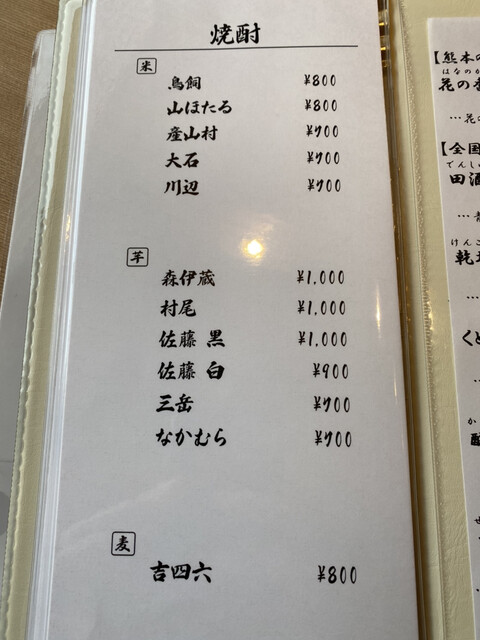 焼酎
米
鳥飼 ¥800
山ほたる ¥800
産山村 ¥700
大石 ¥700
川辺 ¥700
芋
森伊蔵 ¥1,000
村尾 ¥1,000
佐藤 黒 ¥1,000
佐藤 白 ¥900
三岳 ¥700
なかむら ¥700
麦
吉四六 ¥800
【熊本の
はなのか
花の香
…花の
【全国
でんしゅ
田酒
…青
けんこ
乾坤
くど